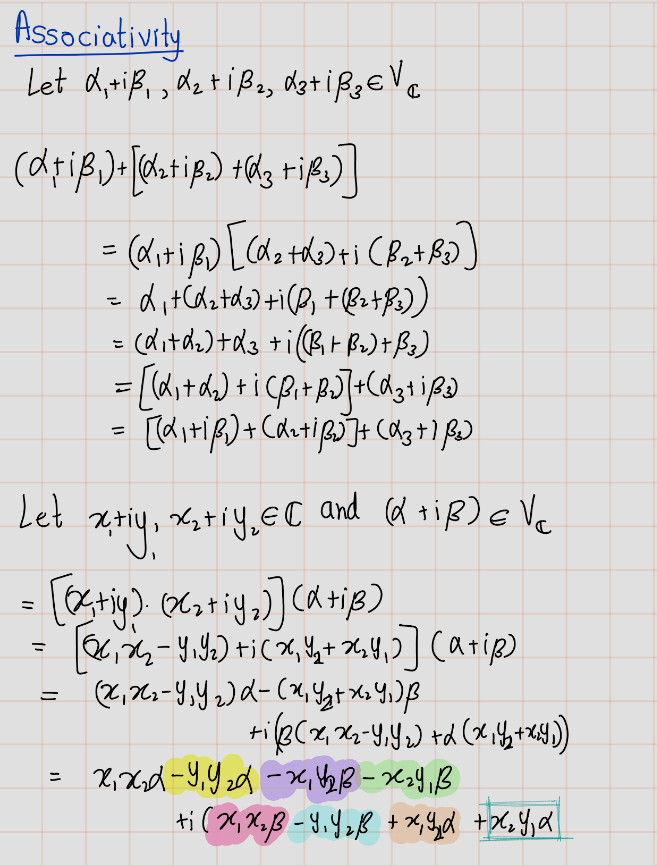 Associativity
Let α₁+iβ₁, α₂+iβ₂, α₃+iβ₃ ∈ V_ℂ
(α₁+iβ₁)+[(α₂+iβ₂)+(α₃+iβ₃)]
= (α₁+iβ₁)[(α₂+α₃)+i(β₂+β₃)]
= α₁+(α₂+α₃)+i(β₁+(β₂+β₃))
= (α₁+α₂)+α₃+i((β₁+β₂)+β₃)
= [(α₁+α₂)+i(β₁+β₂)]+(α₃+iβ₃)
= [(α₁+iβ₁)+(α₂+iβ₂)]+(α₃+iβ₃)
Let x₁+iy₁, x₂+iy₂ ∈ ℂ and (α+iβ) ∈ V_ℂ
= [(x₁+iy₁)·(x₂+iy₂)](α+iβ)
= [(x₁x₂-y₁y₂)+i(x₁y₂+x₂y₁)](α+iβ)
= (x₁x₂-y₁y₂)α-(x₁y₂+x₂y₁)β
+i(β(x₁x₂-y₁y₂)+α(x₁y₂+x₂y₁))
= x₁x₂α-y₁y₂α-x₁y₂β-x₂y₁β
+i(x₁x₂β-y₁y₂β+x₁y₂α+x₂y₁α